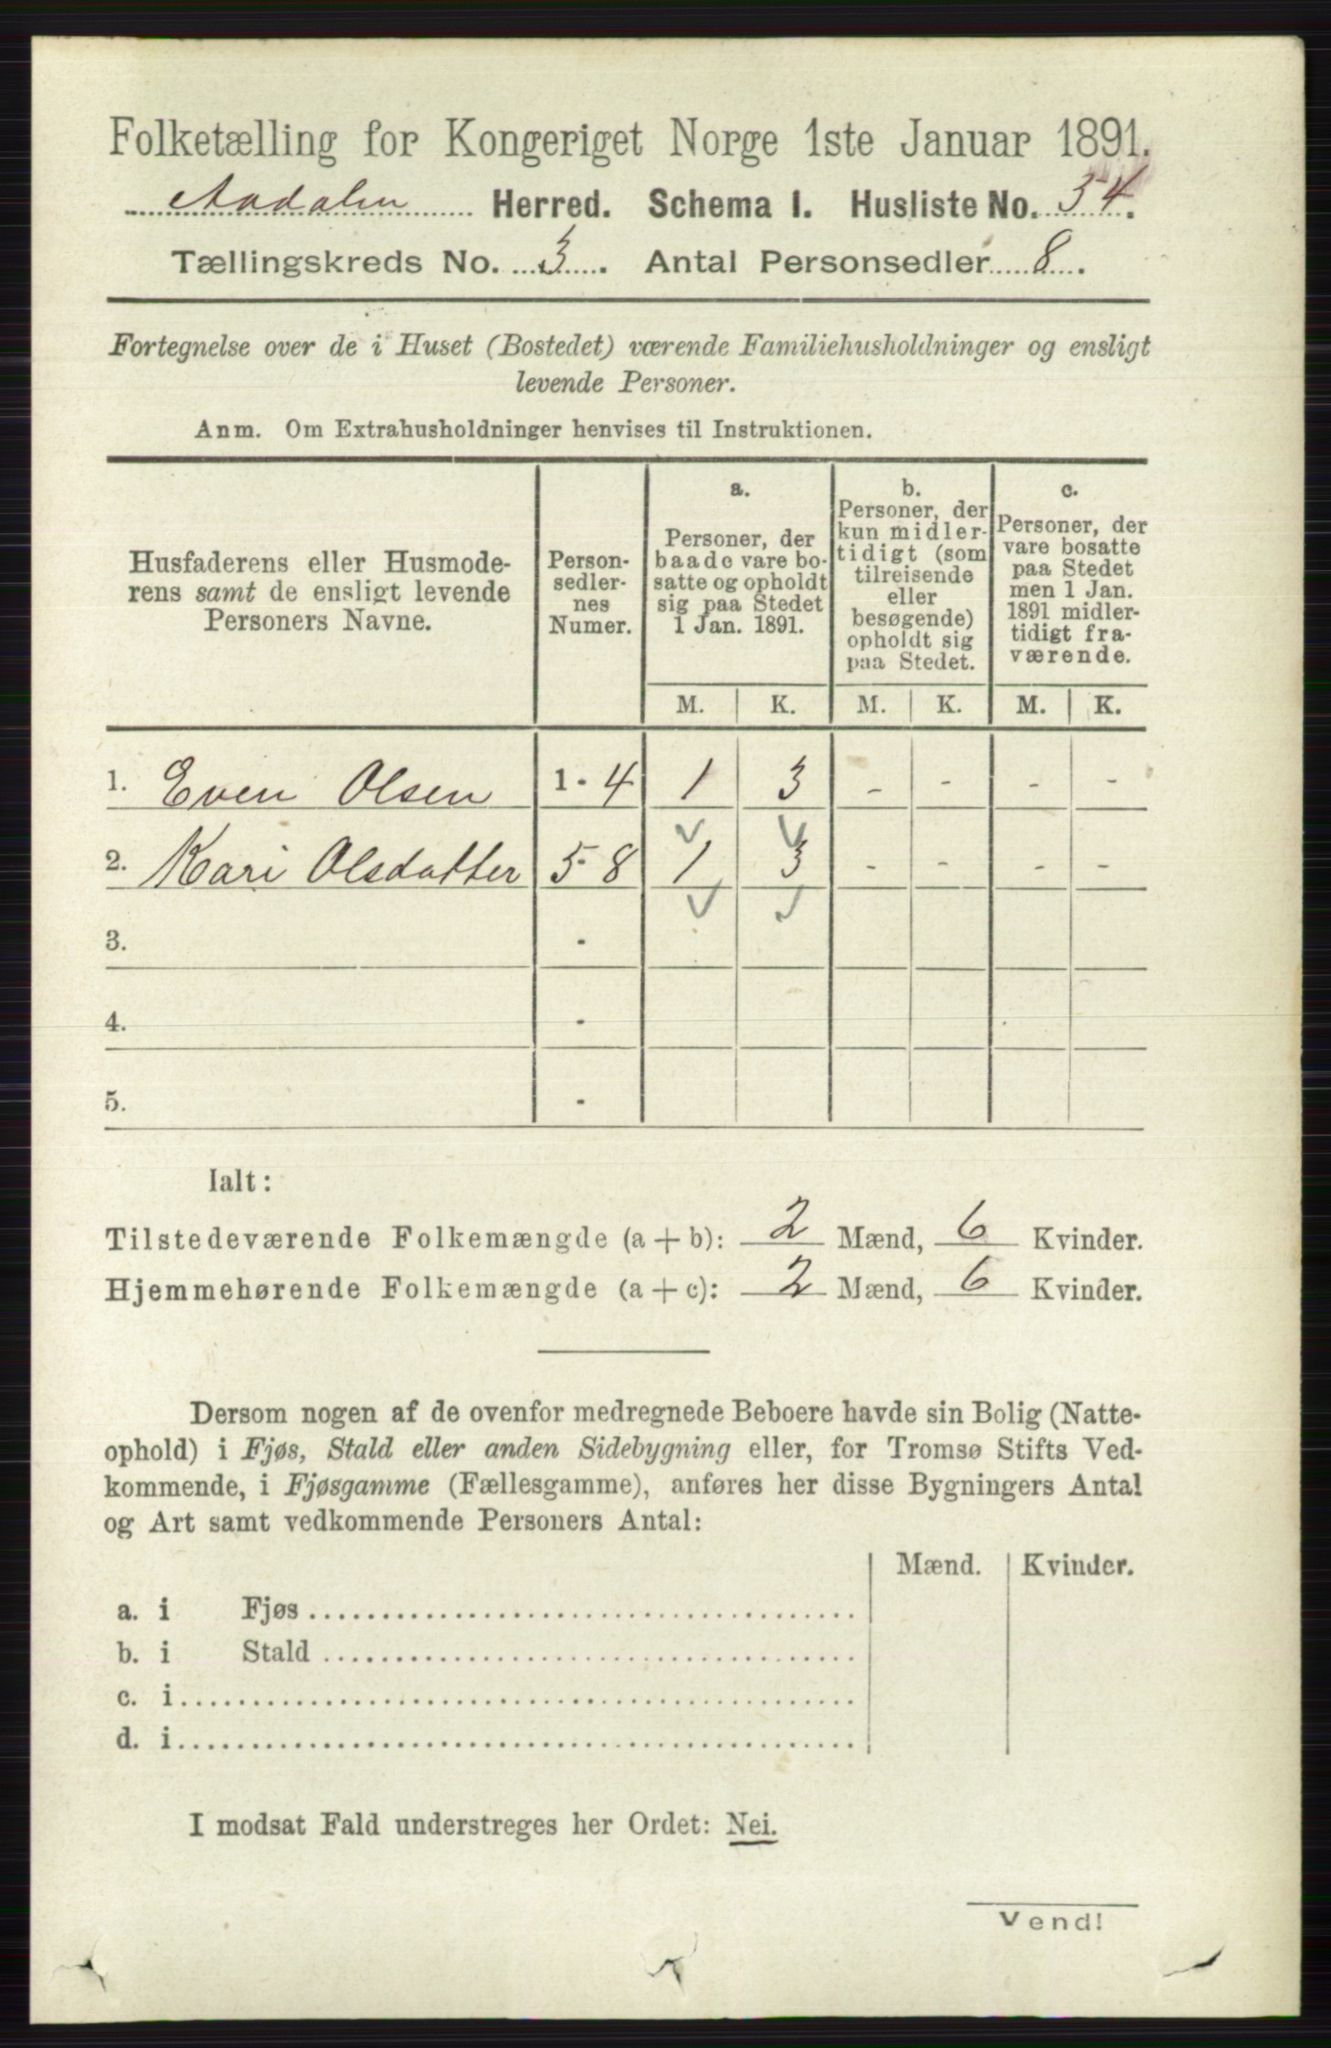 Folketælling for Kongeriget Norge 1ste Januar 1891.
Aadalen Herred. Schema I. Husliste No. 34.
Tællingskreds No. 3. Antal Personsedler 8.
Fortegnelse over de i Huset (Bostedet) værende Familiehusholdninger og ensligt
levende Personer.
Anm. Om Extrahusholdninger henvises til Instruktionen.
Husfaderens eller Husmode-
rens samt de ensligt levende
Personers Navne.
Person-
sedler-
nes
Numer.
a.
Personer, der
baade vare bo-
satte og opholdt
sig paa Stedet
1 Jan. 1891.
b.
Personer, der
kun midler-
tidigt (som
tilreisende
eller
besøgende)
opholdt sig
paa Stedet.
c.
Personer, der
vare bosatte
paa Stedet
men 1 Jan.
1891 midler-
tidigt fra-
værende.
M. K. M. K. M. K.
1. Even Olsen 1-4 1 3 - - - -
2. Kari Olsdatter 5-8 1 3 - - - -
3. -
4. -
5. -
Ialt:
Tilstedeværende Folkemængde (a + b): 2 Mænd, 6 Kvinder.
Hjemmehørende Folkemængde (a + c): 2 Mænd, 6 Kvinder.
Dersom nogen af de ovenfor medregnede Beboere havde sin Bolig (Natte-
ophold) i Fjøs, Stald eller anden Sidebygning eller, for Tromsø Stifts Ved-
kommende, i Fjøsgamme (Fællesgamme), anføres her disse Bygningers Antal
og Art samt vedkommende Personers Antal:
Mænd. Kvinder.
a. i Fjøs
b. i Stald
c. i
d. i
I modsat Fald understreges her Ordet: Nei.
Vend!